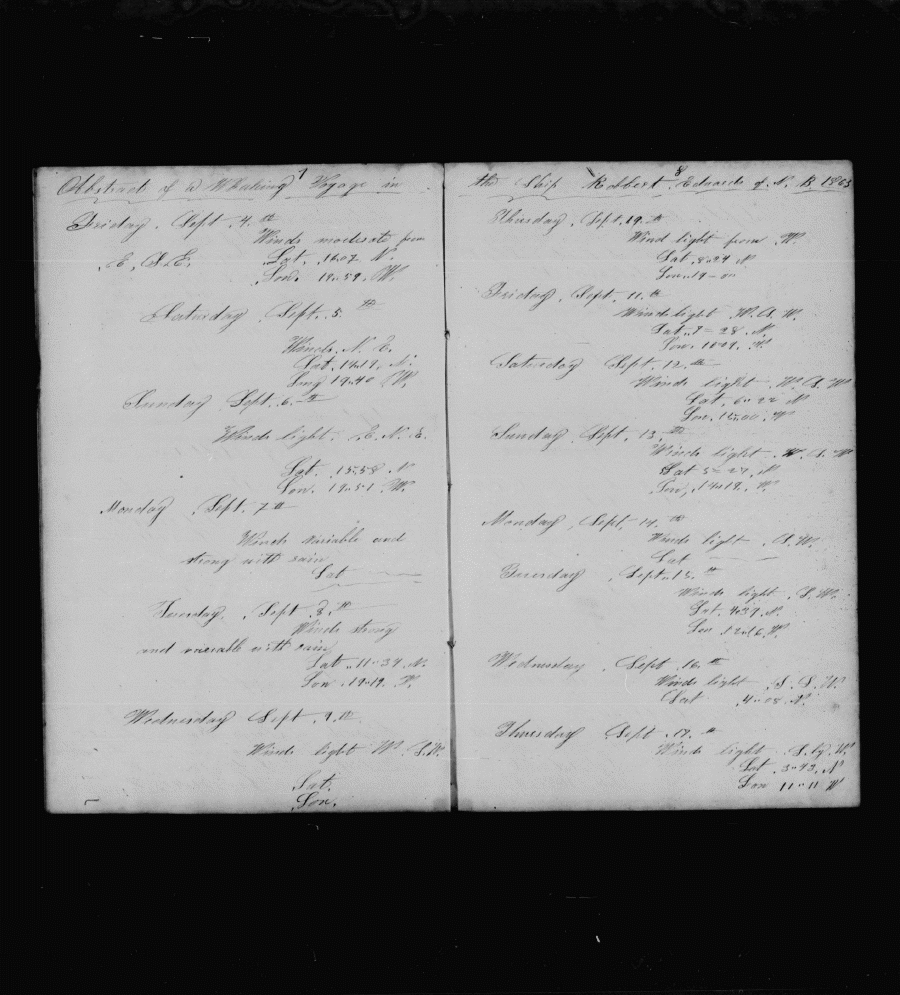 7
Abstract of a Whaling Voyage in
Friday, Sept. 4.th
Winds moderate from
E, S.E. Lat. 16.07 N.
Lon. 19.59. W.
Saturday Sept. 5th
Winds. N. E.
Lat. 14.19. N.
Long 19.40 W.
Sunday Sept. 6.th
Winds light. E. N. E.
Lat. 15.58 N
Lon. 19.51 W.
Monday Sept. 7th
Winds variable and
strong with rain
Lat
Tuesday, Sept 8.th
Winds strong
and variable with rain
Lat. 11.34. N.
Lon. 19.19. W.
Wednesday Sept. 9.th
Winds light W. S.W.
Lat.
Lon.
8
the Ship Robbert Edwards of N. B. 1863
Thursday, Sept. 10.th
Wind light from W.
Lat. 8.29 N
Lon. 19
Friday, Sept. 11.th
Winds light W. S. W.
Lat. 7 28. N.
Lon. W.
Saturday Sept. 12.th
Winds light. W. S. W
Lat. 6.22 N
Lon. W
Sunday Sept. 13.th
Winds light. W. S. W
Lat 5 27. N
Lon. 14.12. W.
Monday, Sept. 14.th
Winds light, S.W.
Lat
Tuesday, Sept. 15.th
Winds light, S.W.
Lat. 4.37. N.
Lon. 12.16. W.
Wednesday, Sept 16.th
Winds light, S. S. W.
Lat 4.08. N.
Thursday Sept. 17.th
Winds light. S. by W.
Lat. 3.43. N
Lon 11.11 W